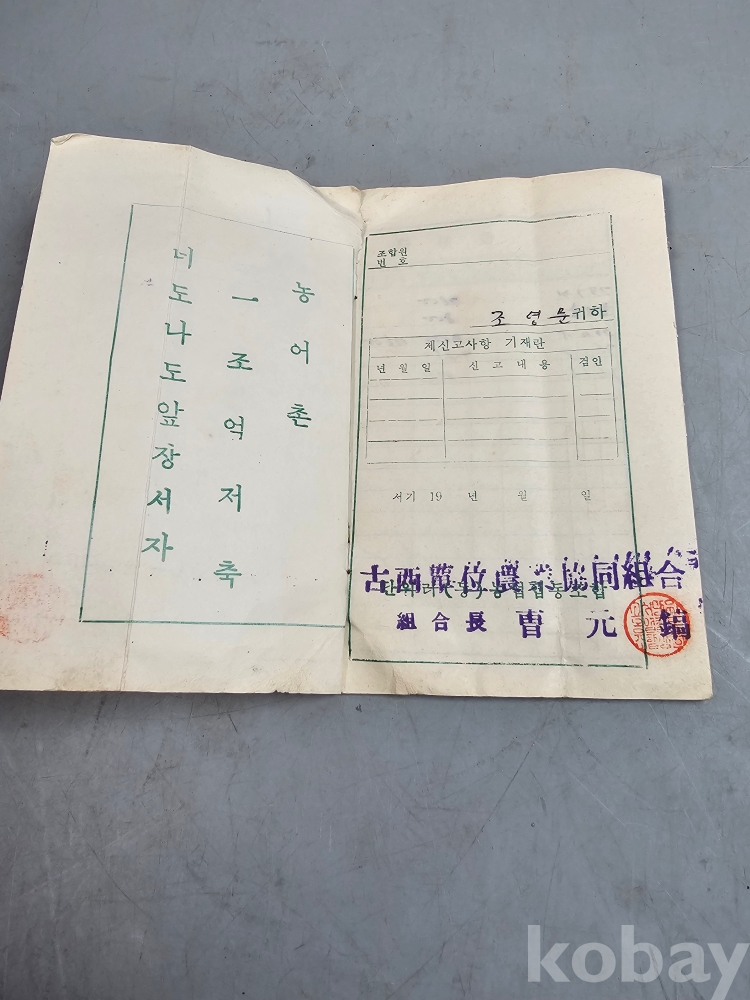 농어촌
一조억저축
너도나도앞장서자
조합원
번호
조영문귀하
제신고사항 기재란
년월일 신고내용 검인
서기 19 년 월 일
古西單位農業協同組合
組合長 曺元鎬
kobay